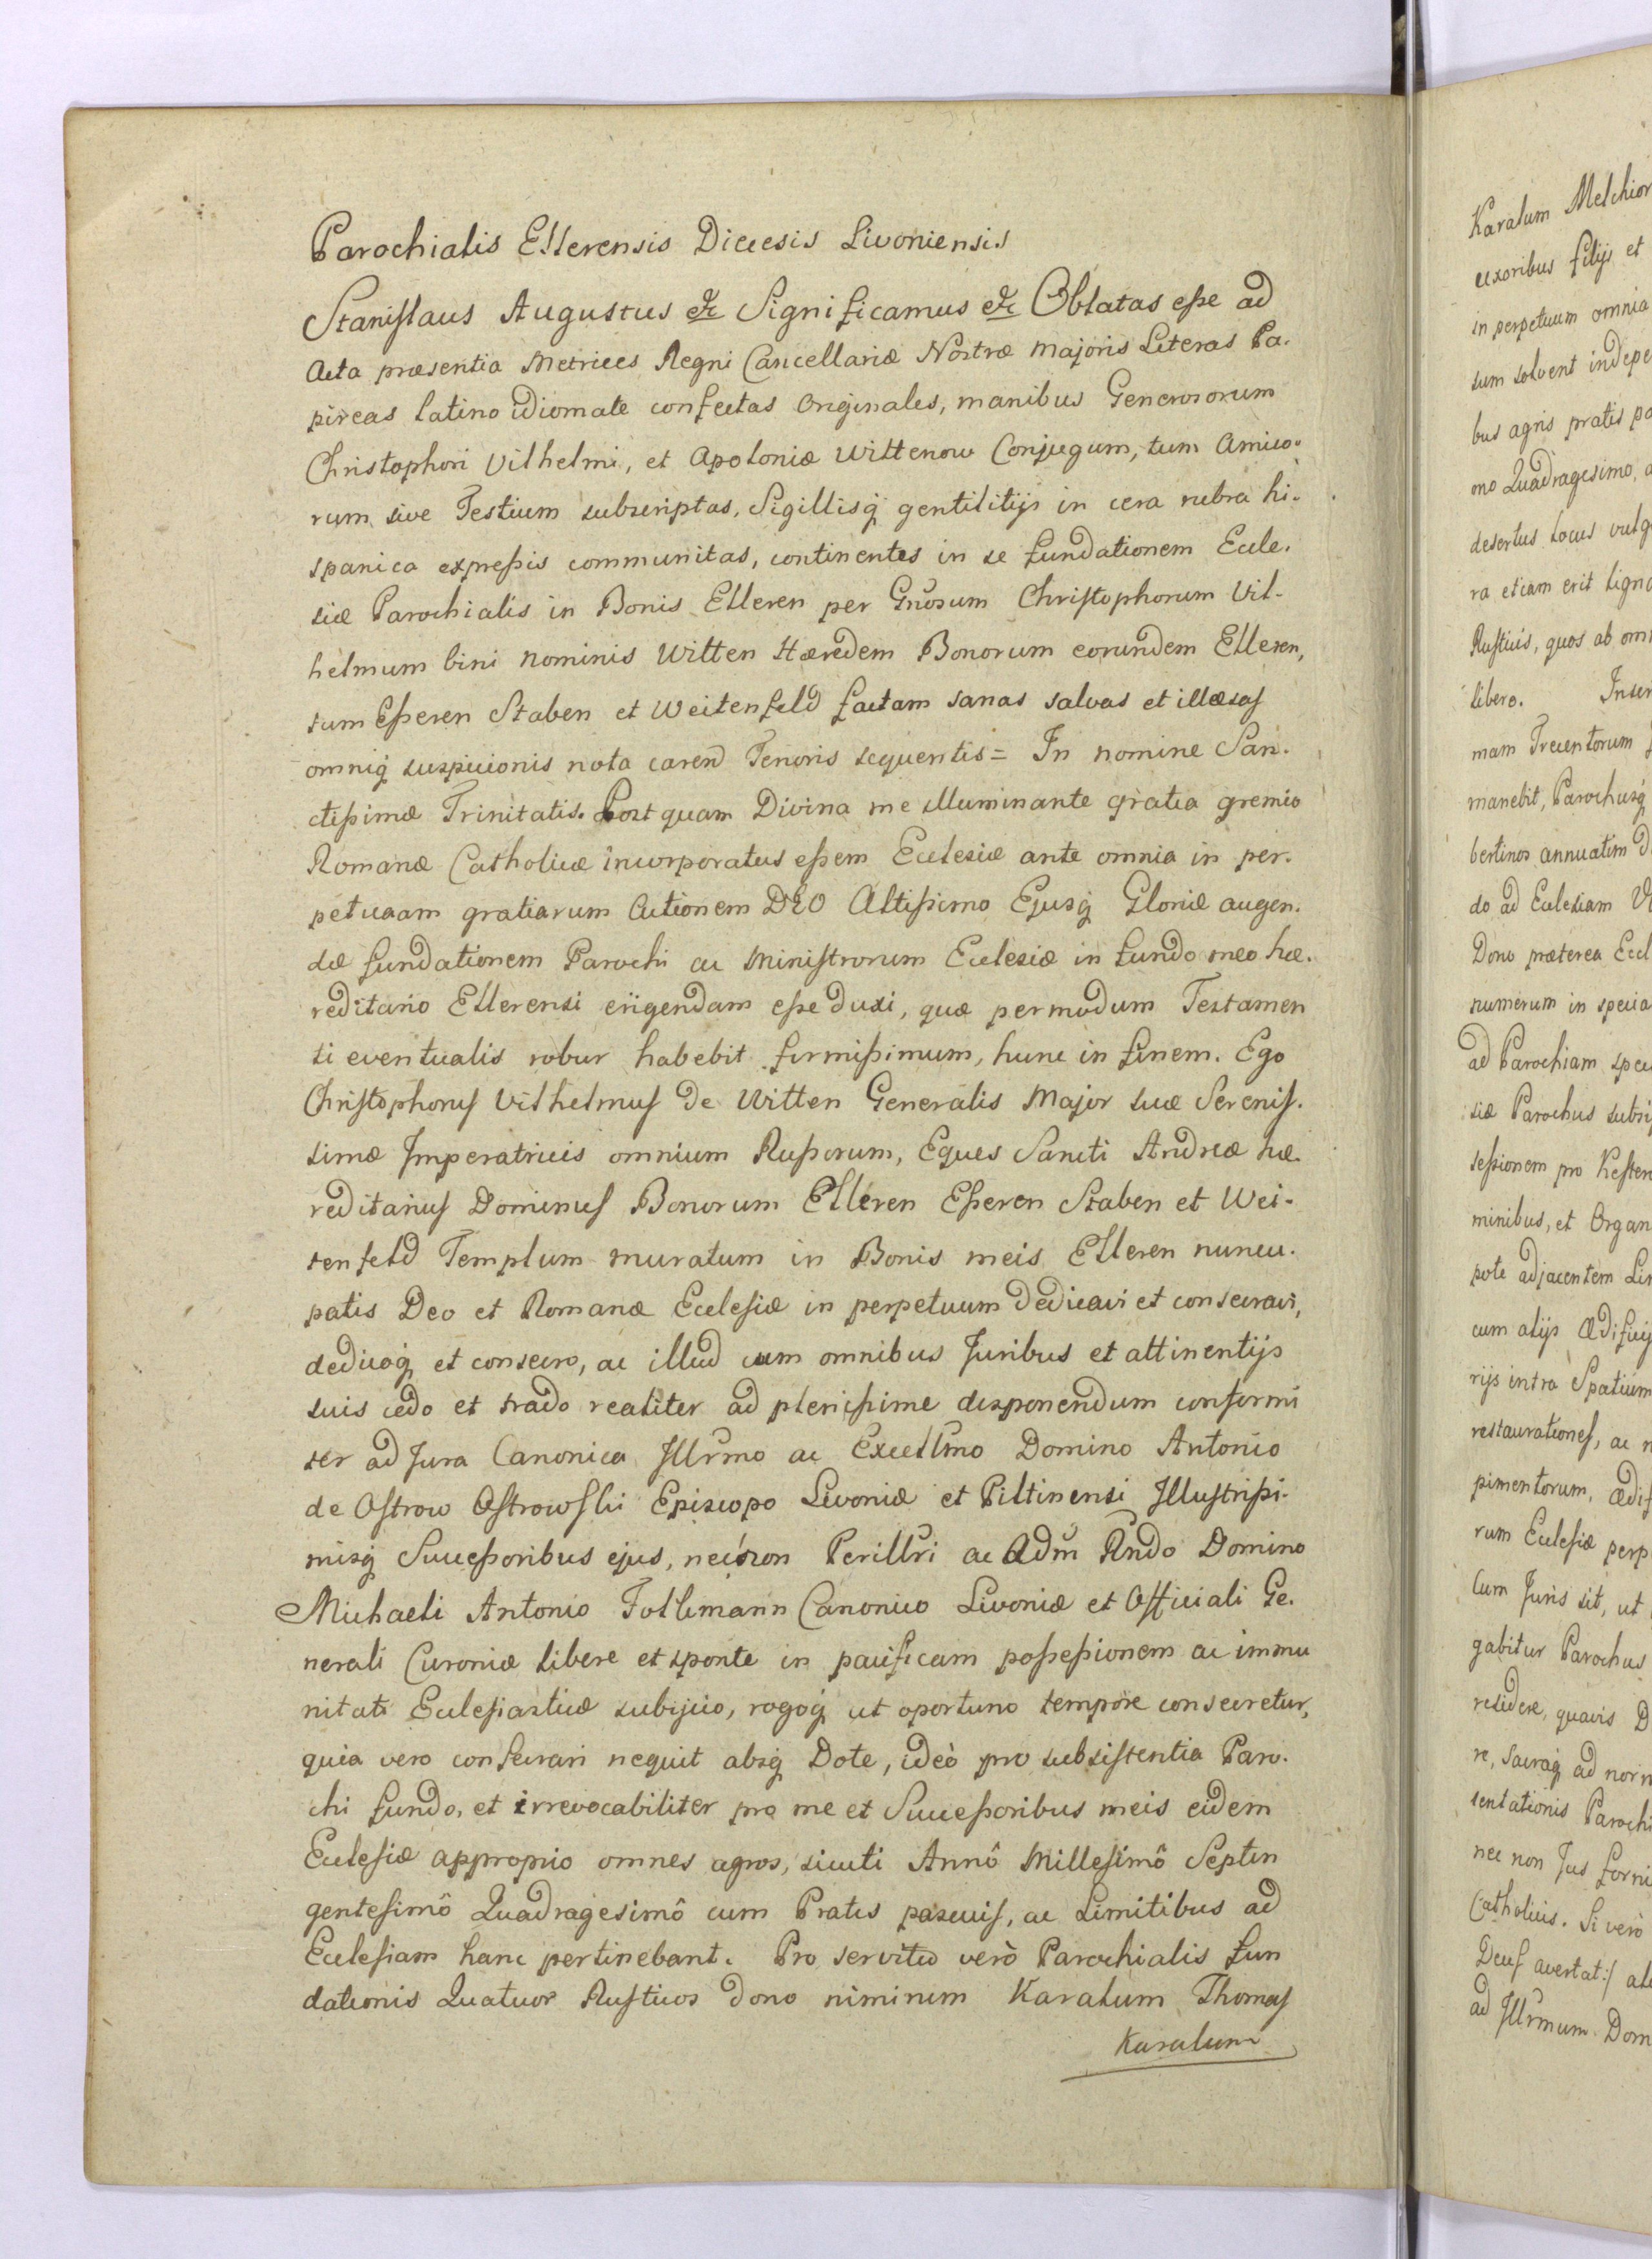 Parochialis Ellerensis Diecesis Livoniensis
Stanislaus Augustus &c Significamus &c Oblatas esse ad
Acta præsentia Metrices Regni Cancellariæ Nostræ Majoris Literas Pa-
pireas latino idiomate confectas Originales, manibus Generosorum
Christophori Vilhelmi, et Apoloniæ Wittenow Conjugum, tum Amico-
rum sive Testium subscriptas, Sigillisq gentilitijs in cera rubra hi-
spanica expressis communitas, continentes in se fundationem Eccle-
siæ Parochialis in Bonis Elleren per Gnosum Christophorum Vil-
helmum bini nominis Witten Hæredem Bonorum eorundem Elleren,
tum Esseren Staben et Weitenfeld factam sanas salvas et illæsas
omniq suspicionis nota caren Tenoris sequentis = In nomine San-
ctissimæ Trinitatis. Post quam Divina me illuminante gratia gremio
Romanæ Catholicæ incorporatus essem Ecclesiæ ante omnia in per-
petuaam gratiarum Actionem DEO Altissimo Ejusq Gloriæ augen-
dæ fundationem Parochi ac Ministrorum Ecclesiæ in fundo meo hæ-
reditario Ellerensi erigendam esse duxi, quæ per modum Testamen
ti eventualis robur habebit firmissimum, hunc in finem. Ego
Christophorus Vilhelmus de Witten Generalis Major suæ Serenis-
simæ Imperatricis omnium Russorum, Eques Sancti Andreæ hæ-
reditarius Dominus Bonorum Elleren Esseren Staben et Wei-
tenfeld Templum muratum in Bonis meis Elleren nuncu-
patis Deo et Romanæ Ecclesiæ in perpetuum dedicavi et consecravi,
dedicoq et consecro, ac illud cum omnibus Juribus et attinentijs
suis cedo et trado realiter ad plenissime disponendum conformi
ter ad Jura Canonica Illrmo ac Excellmo Domino Antonio
de Ostrow Ostrowski Episcopo Livoniæ et Piltinensi Illustrissi-
misq Successoribus ejus, necnon Perillri ac Adm Rndo Domino
Michaeli Antonio Folkmann Canonico Livoniæ et Officiali Ge-
nerali Curoniæ libere et sponte in pacificam possessionem ac immu
nitati Ecclesiasticæ subijcio, rogoq ut oportuno tempore consecretur,
quia vero consecrari nequit absq Dote, ideò pro subsistentia Paro-
chi fundo, et irrevocabiliter pro me et Successoribus meis eidem
Ecclesiæ approprio omnes agros, sicuti Annô Millesimô Septin
gentesimô Quadragesimô cum Pratis pascuis, ac Limitibus ad
Ecclesiam hanc pertinebant. Pro servitio verò Parochialis fun
dationis Quatuor Rusticos dono niminum Karalum Thomas
Karalum
Karalum Melchior
uxoribus filijs et
in perpetuum omnia
sum solvent indepe
bus agris pratis pa
mo Quadragesimo, a
desertus locus vulg
ra etiam erit ligna
Rusticis, quos ab omn
libero. Inser
mam Trecentorum
manebit, Parochusq
bertinos annuatim d
do ad Ecclesiam
Dono præterea Eccl
numerum in specia
ad Parochiam spec
siæ Parochus subri
sessionem pro
minibus, et Organ
pote adjacentem Li
cum alijs ædificij
rijs intra Spatium
restaurationes, ac n
pimentorum, ædif
rum Ecclesiæ perp
Cum Juris sit, ut
gabitur Parochus
residere, quavis D
re, sacraq ad norm
sentationis Parochi
nec non Jus
Catholicis. Si verò
Deus avertat :/ ali
ad Illrmum Dom